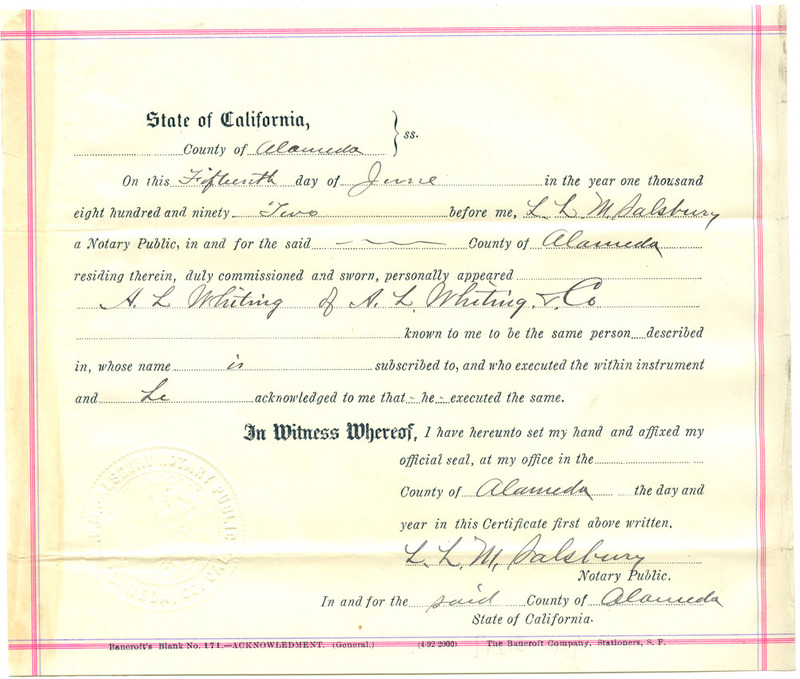 State of California,
ss.
County of Alameda
On this Fifteenth day of June in the year one thousand
eight hundred and ninety Two before me, L. L. M. Salsbury
a Notary Public, in and for the said County of Alameda
residing therein, duly commissioned and sworn, personally appeared
A. L. Whiting of A. L. Whiting & Co
known to me to be the same person described
in, whose name is subscribed to, and who executed the within instrument
and he acknowledged to me that - he - executed the same.
In Witness Whereof, I have hereunto set my hand and affixed my
official seal, at my office in the
County of Alameda the day and
year in this Certificate first above written.
L. L. M. Salsbury
Notary Public.
In and for the said County of Alameda
State of California.
NOTARY PUBLIC
Bancroft's Blank No. 171.—ACKNOWLEDMENT. (General.) (4-92-2000) The Bancroft Company, Stationers, S. F.